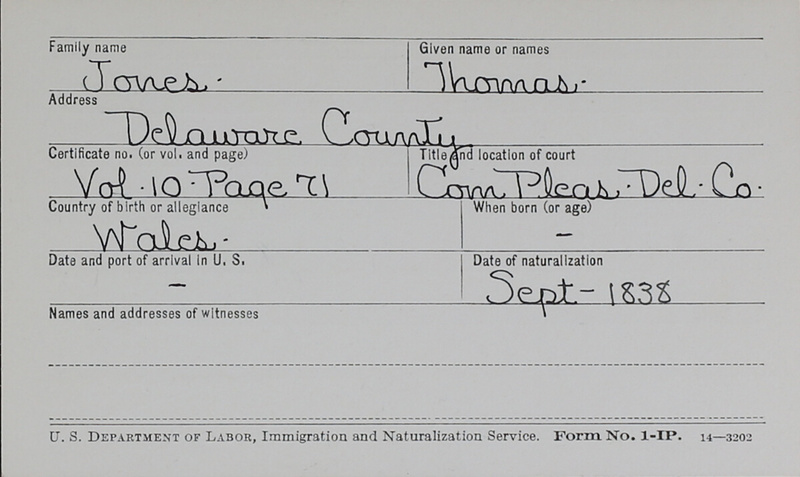 Family name Given name or names
Jones. Thomas.
Address
Delaware County
Certificate no. (or vol. and page) Title and location of court
Vol. 10 - Page 71 Com Pleas. Del. Co.
Country of birth or allegiance When born (or age)
Wales. –
Date and port of arrival in U. S. Date of naturalization
– Sept - 1838
Names and addresses of witnesses
U. S. DEPARTMENT OF LABOR, Immigration and Naturalization Service. Form No. 1-IP. 14—3202